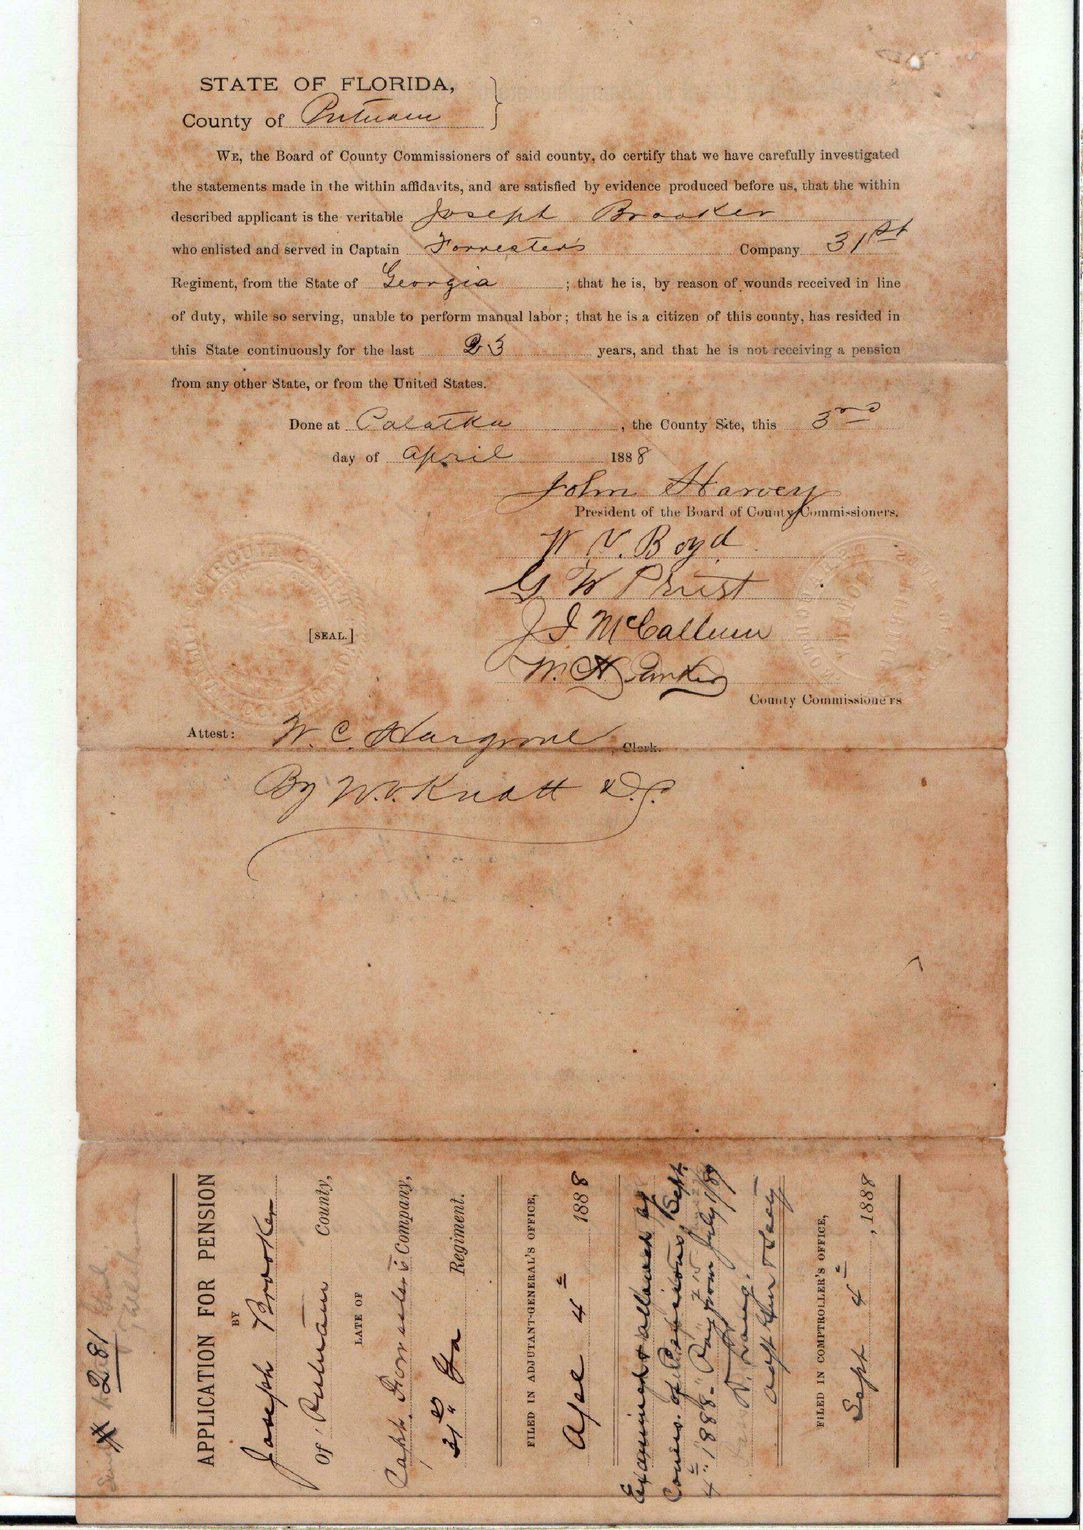 STATE OF FLORIDA,
County of Putnam
WE, the Board of County Commissioners of said county, do certify that we have carefully investigated
the statements made in the within affidavits, and are satisfied by evidence produced before us, that the within
described applicant is the veritable Joseph Brooker
who enlisted and served in Captain Forrester's Company 31st
Regiment, from the State of Georgia ; that he is, by reason of wounds received in line
of duty, while so serving, unable to perform manual labor; that he is a citizen of this county, has resided in
this State continuously for the last 23 years, and that he is not receiving a pension
from any other State, or from the United States.
Done at Palatka , the County Site, this 3rd
day of April 1888
John Harvey
President of the Board of County Commissioners.
W. V. Boyd
G W Priest
J J McCallum
[SEAL.]
W. H.
County Commissioners
Attest: W. C. Hargrove , Clerk.
By W. V. Knott D.C.
281
APPLICATION FOR PENSION
BY
Joseph Brooker
of Putnam County,
LATE OF
Capt. Forrester's Company,
31st Ga Regiment.
FILED IN ADJUTANT-GENERAL'S OFFICE,
Apl 4th 1888
Examined & allowed by
Comrs. of Pensions, Sept.
4th 1888 - Pay from July 1/89
D. Lang.
Adjt Genl & Secty
FILED IN COMPTROLLER'S OFFICE,
Sept 4th , 1888